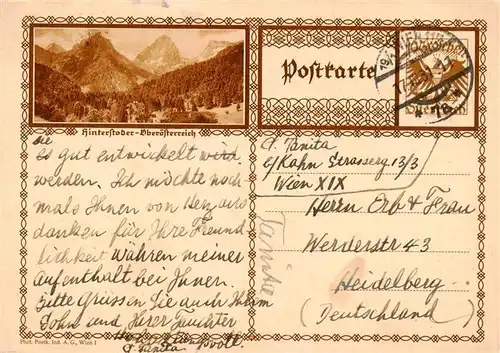 Hinterstoder-Oberösterreich
Postkarte
WIEN
Österreich
sie
es gut entwickelt wird
werden. Ich möchte noch
mals Ihnen von Herz aus
danken für Ihre Freund
lichkeit während meiner
Aufenthalt bei Ihnen.
Bitte Grüssen Sie auch Ihrem
Sohn und Ihrer Tauchter
G. Tanita
Phot. Postk. Ind. A. G., Wien I
G. Tanita
c/Kahn Strasserg 13/3
Wien XIX
Herrn Erb & Frau
Werderstr 43
Heidelberg
(Deutschland)